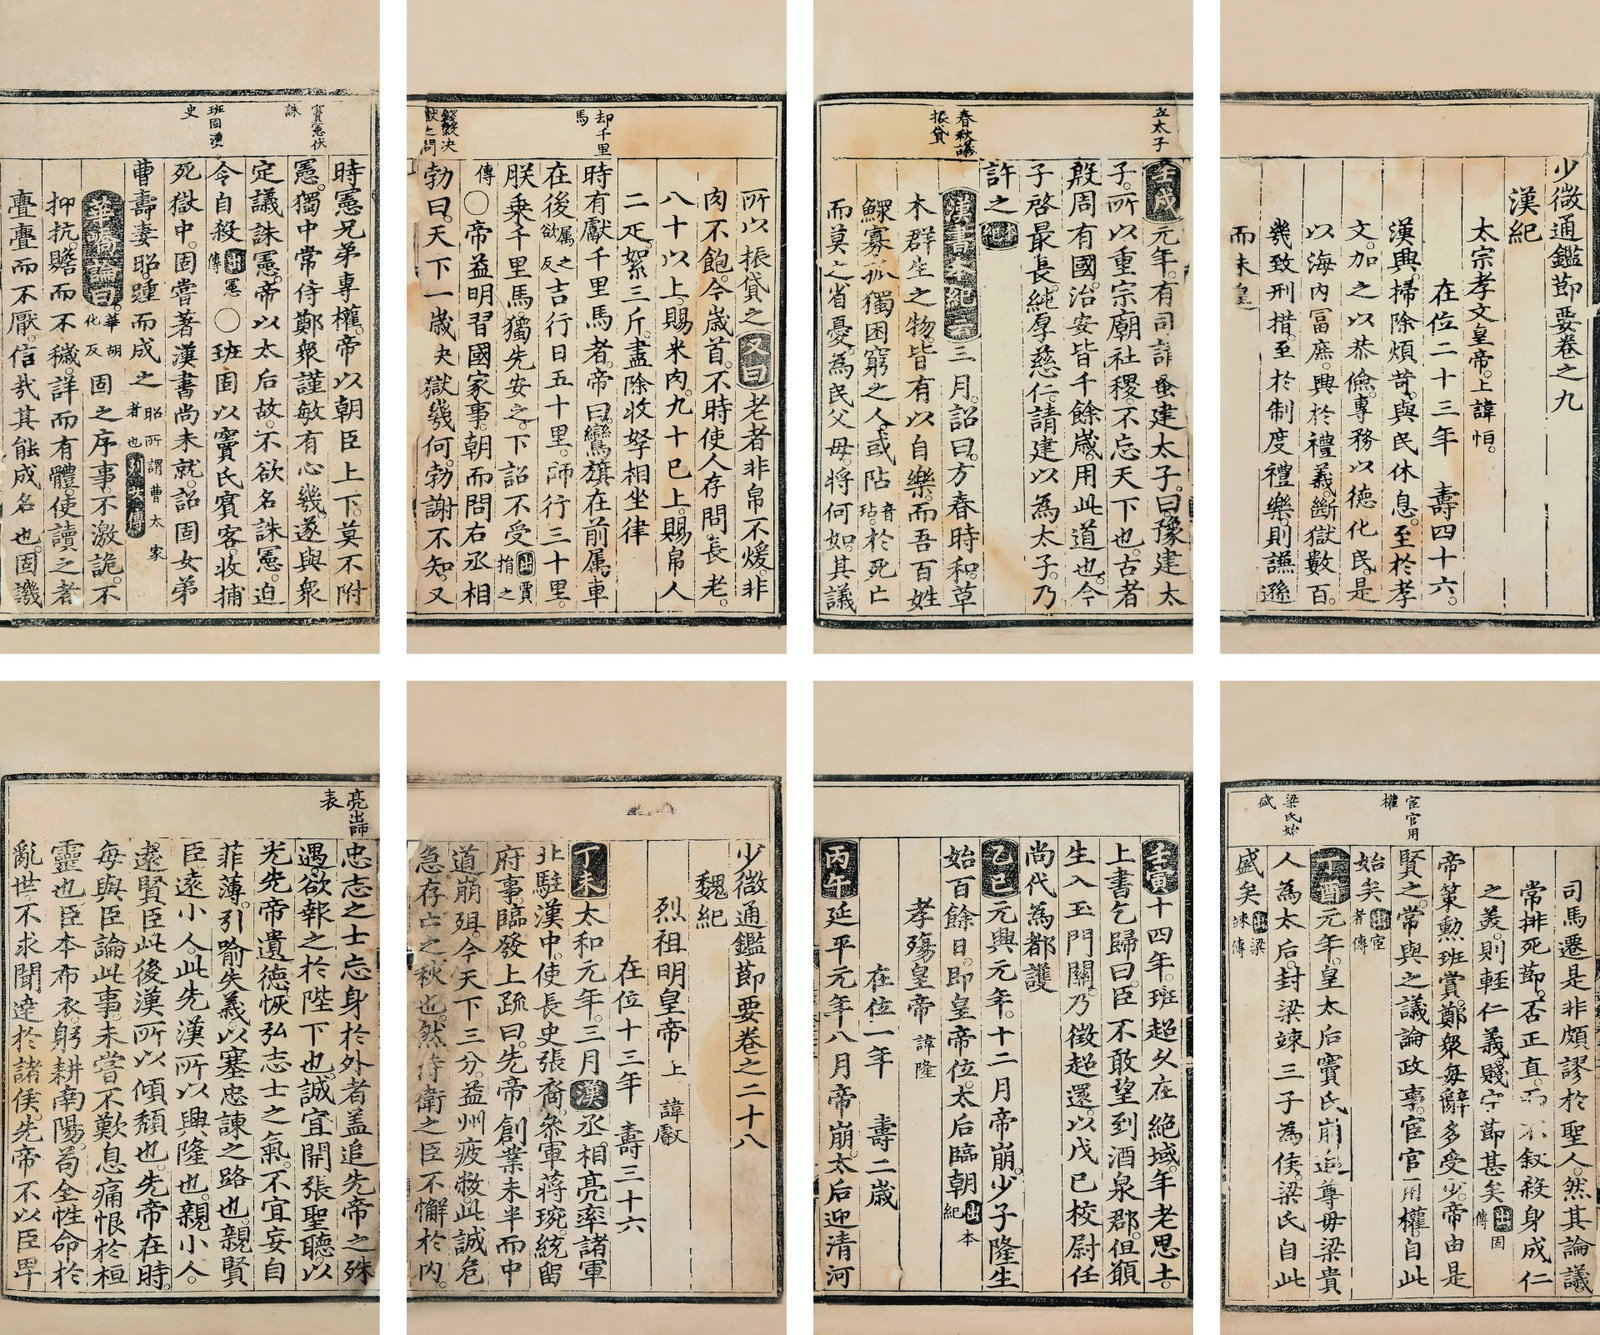 少微通鑑節要卷之九
漢紀
太宗孝文皇帝上諱恒
在位二十三年 壽四十六
漢興掃除煩苛與民休息至於孝
文加之以恭儉專務以德化民是
以海內富庶興於禮義斷獄數百
幾致刑措至於制度禮樂則謙遜
而未皇
立太子
壬戌元年有司請蚤建太子曰豫建太
子所以重宗廟社稷不忘天下也古者
殷周有國治安皆千餘歲用此道也今
子啓最長純厚慈仁請建以為太子乃
許之本紀
春秋議
振貸
漢書本紀云三月詔曰方春時和草
木群生之物皆有以自樂而吾百姓
鰥寡孤獨困窮之人或阽音玷於死亡
而莫之省憂為民父母將何如其議
所以振貸之又曰老者非帛不煖非
肉不飽今歲首不時使人存問長老
八十以上賜米肉九十已上賜帛人
二疋絮三斤盡除收孥相坐律
却千里
馬
時有獻千里馬者帝曰鸞旗在前属車
在後属之欲反吉行日五十里師行三十里
朕乗千里馬獨先安之下詔不受出賈捐之
傳○帝益明習國家事朝而問右丞相
錢穀决
獄之問
勃曰天下一歲决獄幾何勃謝不知又
竇憲伏
誅
時憲兄弟專權帝以朝臣上下莫不附
憲獨中常侍鄭衆謹敏有心幾遂與衆
定議誅憲帝以太后故不欲名誅憲迫
令自殺出憲傳○班固以竇氏賓客收捕
班固漢
史
死獄中固嘗著漢書尚未就詔固女弟
曹壽妻昭踵而成之昭所謂曹太家者也列女傳
華嶠論曰華胡化反固之序事不激詭不
抑抗贍而不穢詳而有體使讀之者
亹亹而不厭信哉其能成名也固譏
司馬遷是非頗謬於聖人然其論議
常排死節否正直而不叙殺身成仁
之美則輕仁義賤守節甚矣出固傳
帝策勲班賞鄭衆每辭多受少帝由是
宦官用
權
賢之常與之議論政事宦官用權自此
始矣出宦者傳
丁酉元年皇太后竇氏崩追尊母梁貴
人為太后封梁竦三子為侯梁氏自此
梁氏始
盛
盛矣出梁竦傳
壬寅十四年班超久在絕域年老思土
上書乞歸曰臣不敢望到酒泉郡但願
生入玉門關乃徵超還以戊已校尉任
尚代為都護
乙巳元興元年十二月帝崩少子隆生
始百餘日即皇帝位太后臨朝出本紀
孝殤皇帝 諱隆
在位一年 壽二歲
丙午延平元年八月帝崩太后迎清河
少微通鑑節要卷之二十八
魏紀
烈祖明皇帝上 諱叡
在位十三年 壽三十六
丁未太和元年三月漢丞相亮率諸軍
北駐漢中使長史張裔參軍蔣琬統留
府事臨發上疏曰先帝創業未半而中
道崩殂今天下三分益州疲敝此誠危
急存亡之秋也然侍衛之臣不懈於內
亮出師
表
忠志之士忘身於外者盖追先帝之殊
遇欲報之於陛下也誠宜開張聖聽以
光先帝遺德恢弘志士之氣不宜妄自
菲薄引喻失義以塞忠諫之路也親賢
臣遠小人此先漢所以興隆也親小人
遠賢臣此後漢所以傾頹也先帝在時
每與臣論此事未嘗不歎息痛恨於桓
靈也臣本布衣躬耕南陽苟全性命於
亂世不求聞達於諸侯先帝不以臣卑